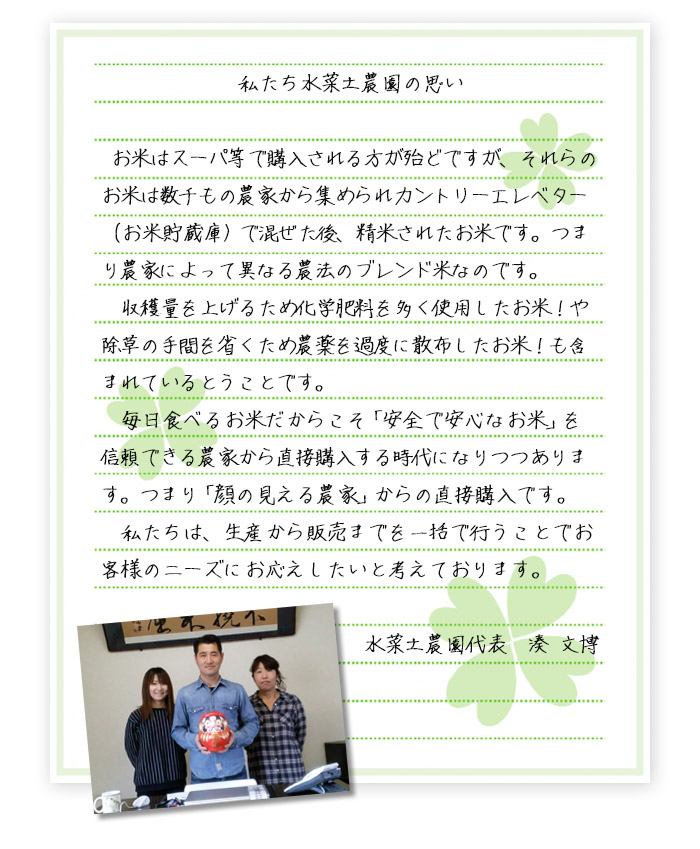 私たち水菜土農園の思い
お米はスーパ等で購入される方が殆どですが、それらの
お米は数千もの農家から集められカントリーエレベター
(お米貯蔵庫)で混ぜた後、精米されたお米です。つま
り農家によって異なる農法のブレンド米なのです。
収穫量を上げるため化学肥料を多く使用したお米!や
除草の手間を省くため農薬を過度に散布したお米!も含
まれているとうことです。
毎日食べるお米だからこそ「安全で安心なお米」を
信頼できる農家から直接購入する時代になりつつありま
す。つまり「顔の見える農家」からの直接購入です。
私たちは、生産から販売までを一括で行うことでお
客様のニーズにお応えしたいと考えております。
水菜土農園代表 湊 文博